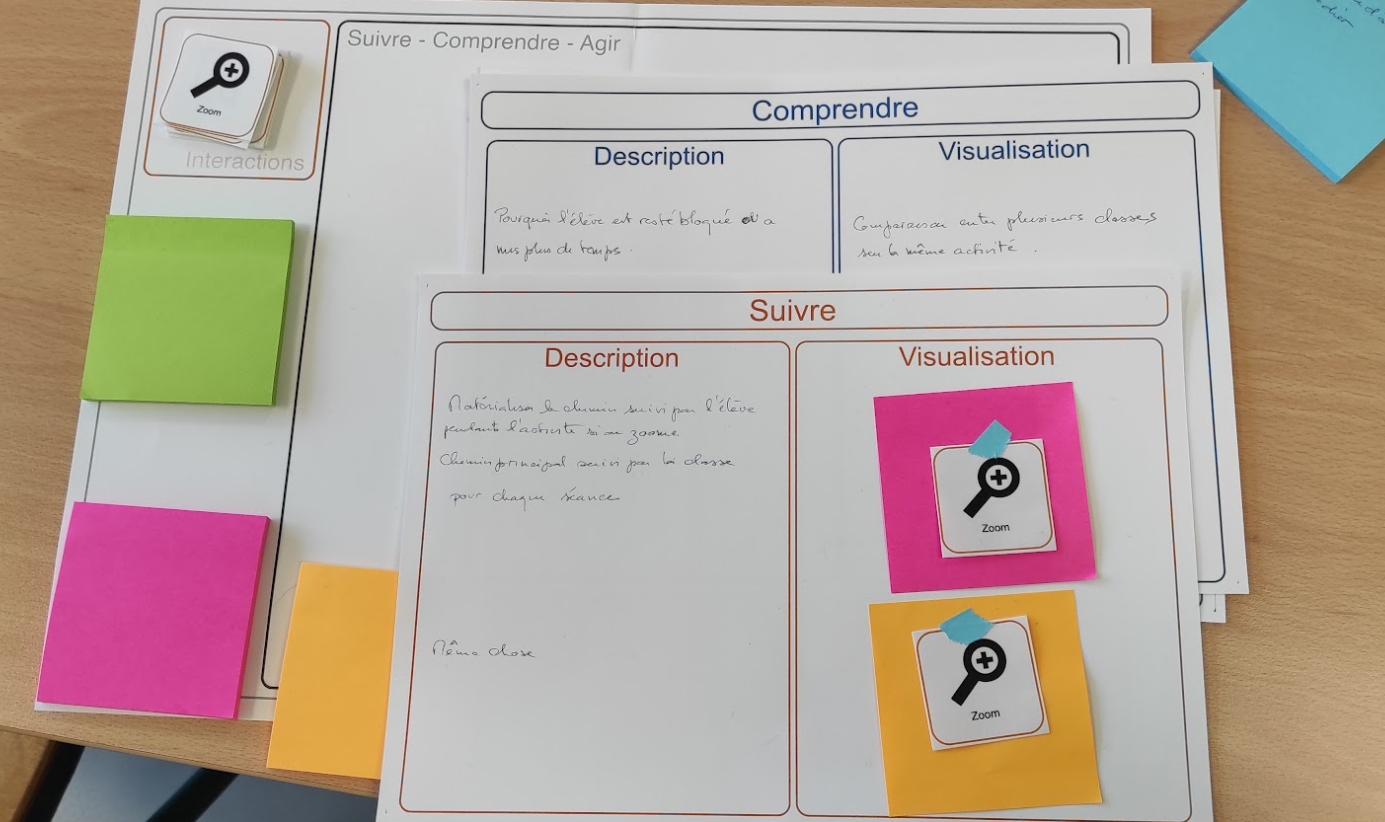 Suivre - Comprendre - Agir
Zoom
Interactions
Comprendre
Description
Pourquoi l'élève est resté bloqué où a
mis plus de temps.
Visualisation
Comparaison entre plusieurs classes
sur la même activité.
Suivre
Description
Matérialiser le chemin suivi par l'élève
pendant l'activité si on zoome
Chemin principal suivi par la classe
pour chaque séance
Même chose
Visualisation
Zoom
Zoom